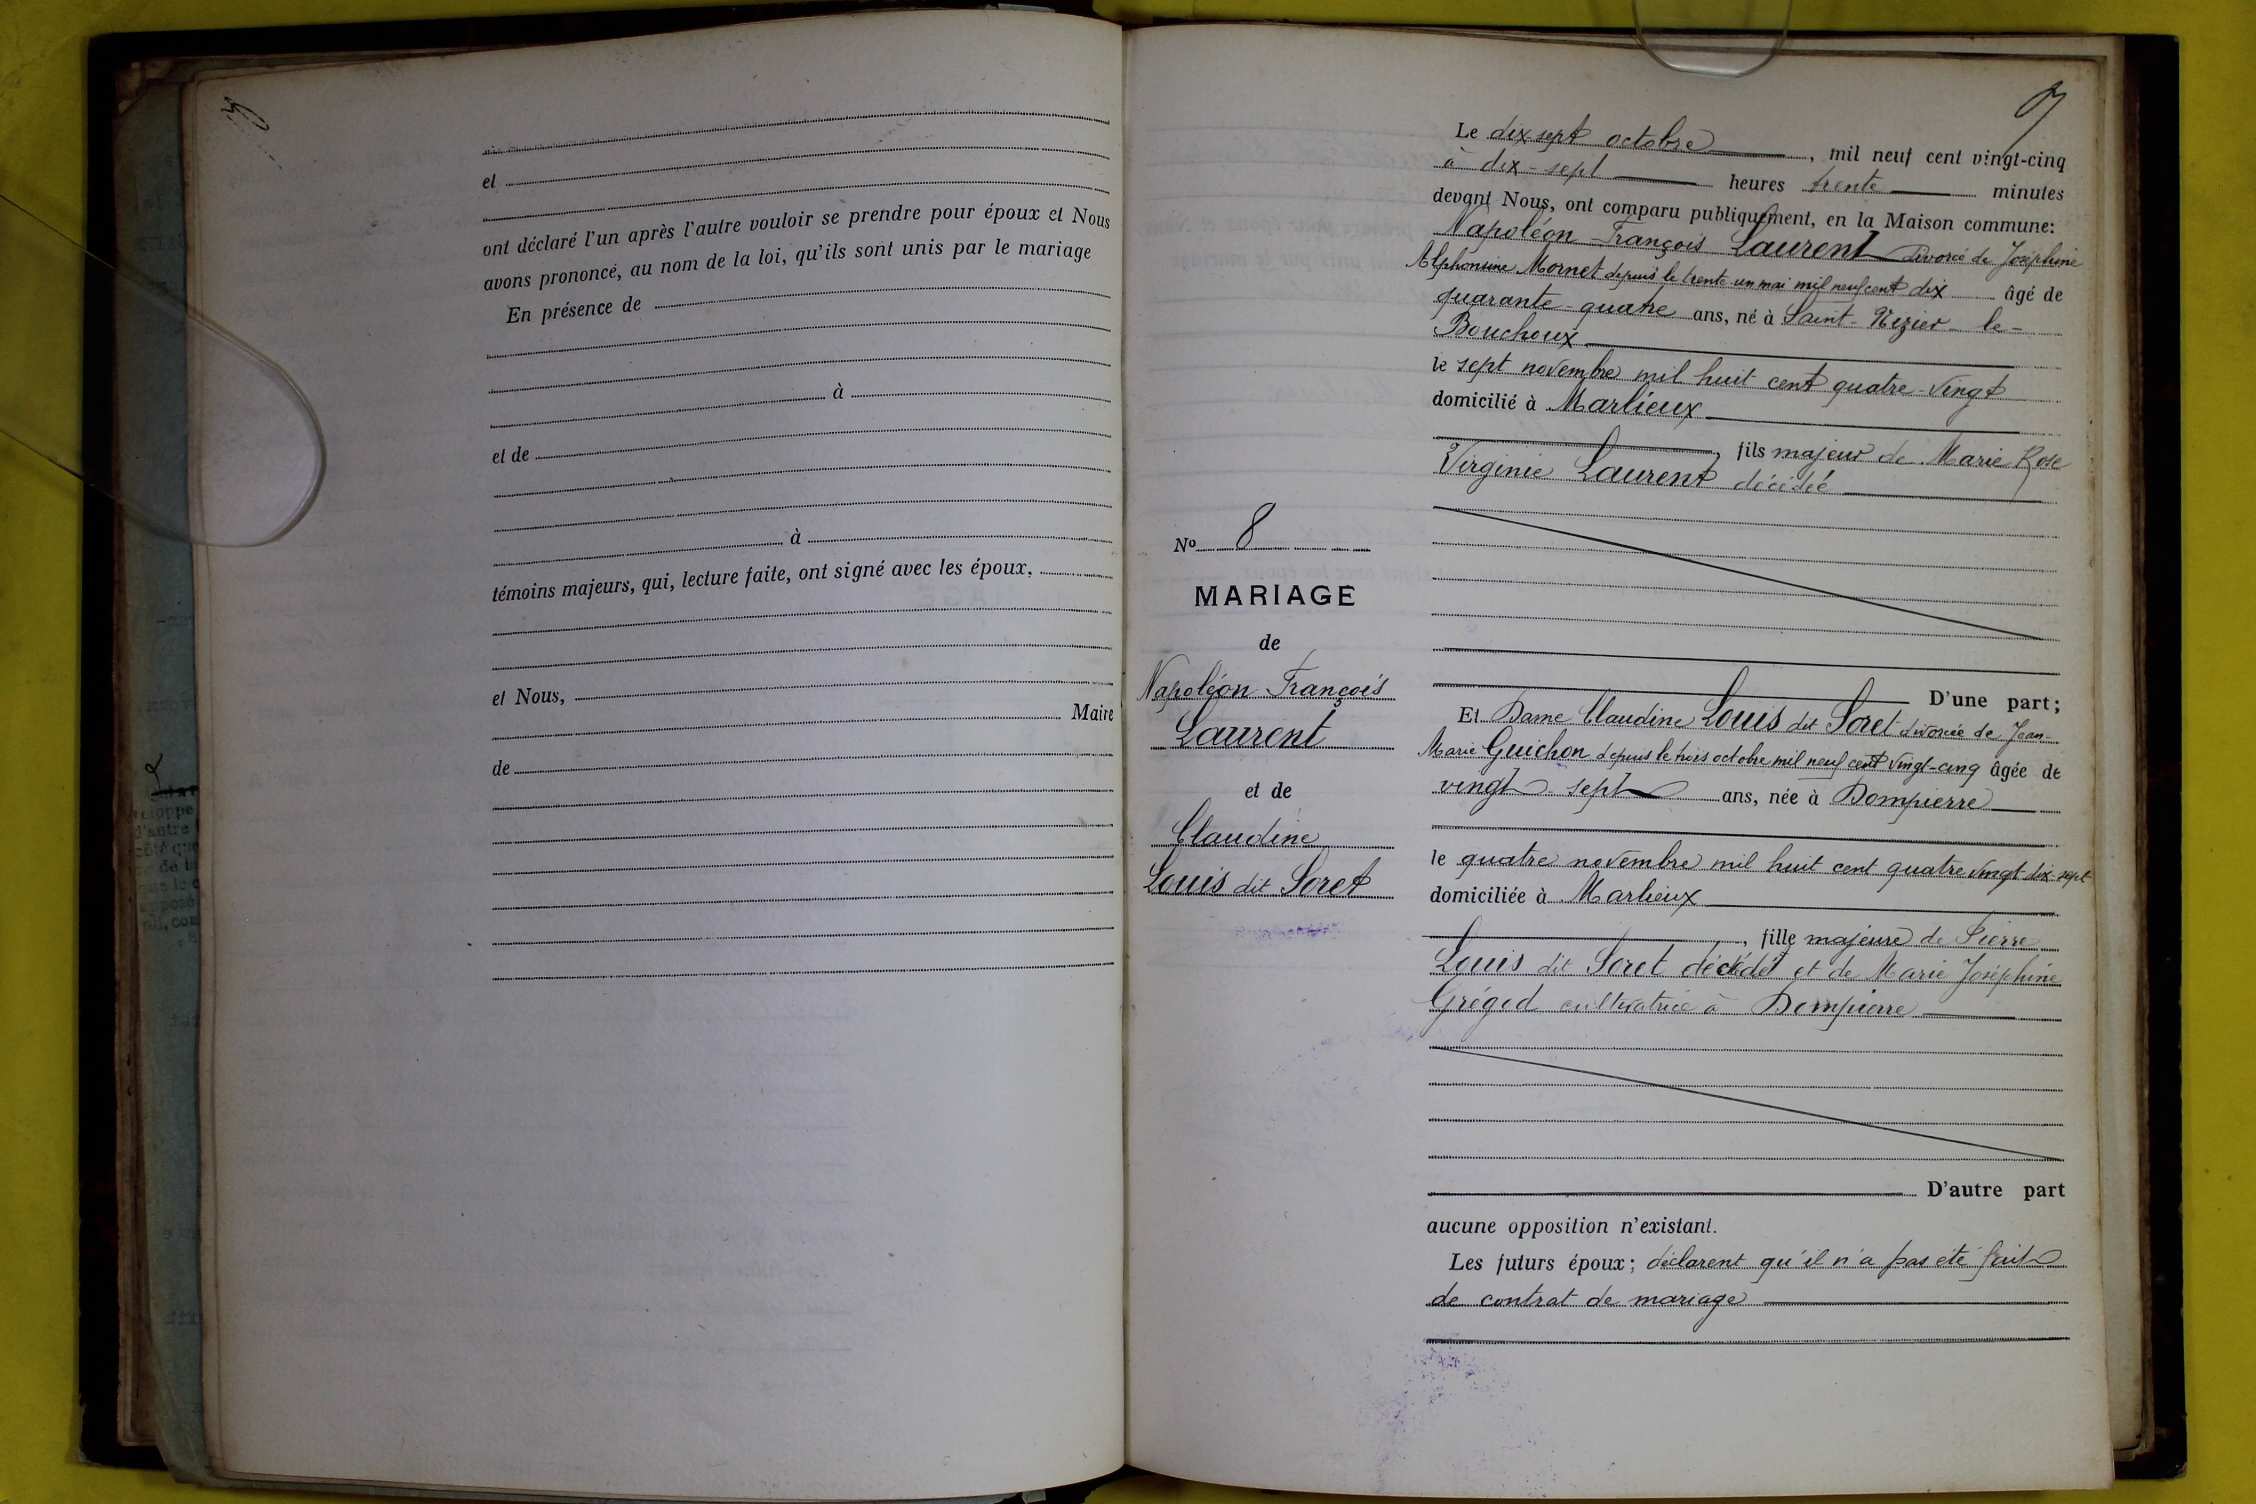 et
ont déclaré l'un après l'autre vouloir se prendre pour époux et Nous
avons prononcé, au nom de la loi, qu'ils sont unis par le mariage
En présence de
à
et de
à
témoins majeurs, qui, lecture faite, ont signé avec les époux,
et Nous,
Maire
de
No 8
MARIAGE
de
Napoléon François
Laurent
et de
Claudine
Louis dit Loret
Le dix sept octobre, mil neuf cent vingt-cinq
à dix-sept heures trente minutes
devant Nous, ont comparu publiquement, en la Maison commune:
Napoléon François Laurent Divorcé de Joséphine
Alphonsine Mornet depuis le trente un mai mil neuf cent dix âgé de
quarante-quatre ans, né à Saint-Nizier-le-
Bouchoux
le sept novembre mil huit cent quatre-vingt
domicilié à Marlieux
, fils majeur de Marie Rose
Virginie Laurent décédé
D'une part;
Et Dame Claudine Louis dit Loret divorcée de Jean-
Marie Guichon depuis le trois octobre mil neuf cent vingt-cinq âgée de
vingt sept ans, née à Dompierre
le quatre novembre mil huit cent quatre vingt dix-sept
domiciliée à Marlieux
, fille majeure de Pierre
Louis dit Loret décédé et de Marie Joséphine
cultivatrice à Dompierre
D'autre part
aucune opposition n'existant.
Les futurs époux; déclarent qu'il n'a pas été fait
de contrat de mariage